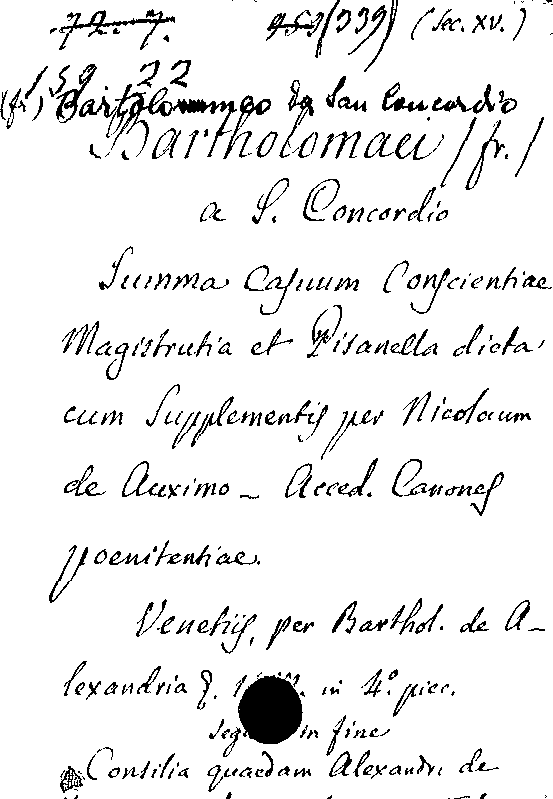 72. 7. 953 (339) (Sec. XV.)
159 22
(fr.) Bartolomeo da San Concordio
Bartholomaei (fr.)
a S. Concordio
Summa Casuum Conscientiae
Magistrutia et Pisanella dicta
cum Supplementis per Nicolaum
de Auximo _ Acced. Canones
poenitentiae.
Venetiis, per Barthol. de A_
lexandria &. in 4.º picc.
in fine
Consilia quaedam Alexandri de